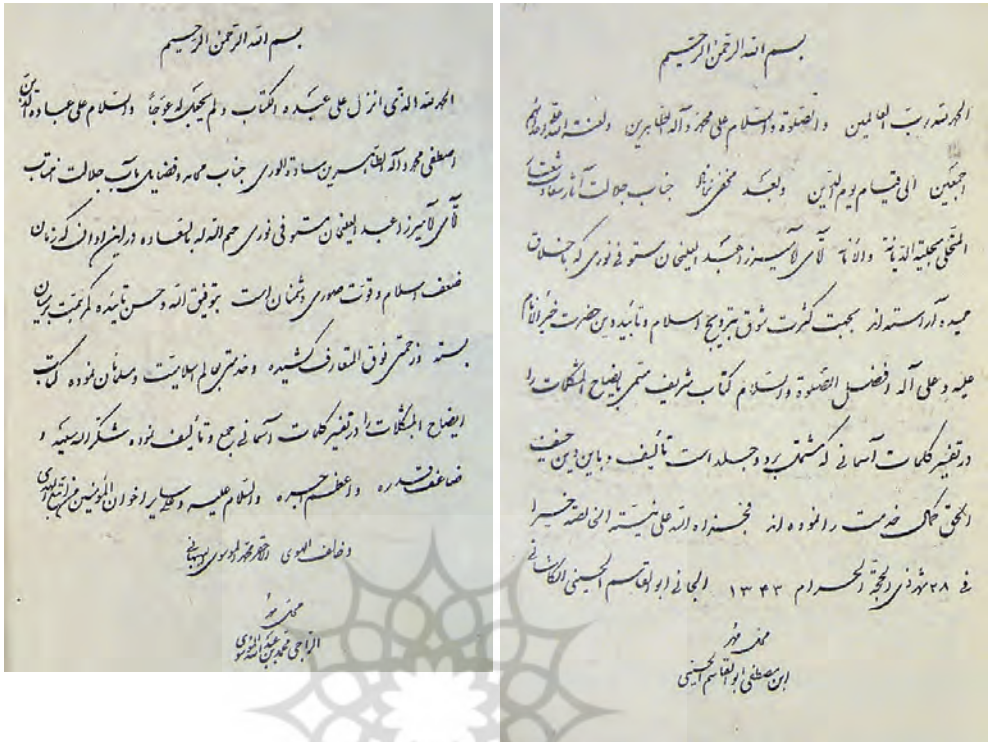 بسم الله الرحمن الرحیم
الحمد لله رب العالمین والصلوة والسلام علی محمد وآله الطاهرین ولعنة الله علی اعدائهم
اجمعین الی قیام یوم الدین وبعد مخفی نماناد جناب جلالت آثار سعادت
المتحلی بحلیة الدیانة والامانة آقای آقا میرزا عبد الغیخان مستوفی نوری که باخلاق
حمیده آراسته‌اند بجهت کثرت شوق بترویج اسلام وتایید دین حضرت خیر الانام
علیه وعلی آله افضل الصلوة والسلام کتاب شریف مسمی بایضاح المشکلات را
در تفسیر کلمات آسمانی که مشتمل بر دو جلد است تألیف و باین دین حنیف
الحق کمال خدمت را نموده‌اند فجزاه الله علی نیته الخالصة خیرا
فی ۲۸ شهر ذی الحجة الحرام ۱۳۴۳ الجانی ابوالقاسم الحسینی الکاشانی
محل مهر
ابن مصطفی ابوالقاسم الحسینی
بسم الله الرحمن الرحیم
الحمد لله الذی انزل علی عبده الکتاب ولم یجعل له عوجاً والسلام علی عباده الذین
اصطفی محمد وآله الطاهرین سادة الوری جناب محامد وفضایل مآب جلالت انتساب
آقای آقا میرزا عبد الغیخان مستوفی نوری ختم الله له بالسعادة در این اوان که زمان
ضعف اسلام وقوت صوری دشمنان است بتوفیق الله وحسن تائیده کمر همت بر میان
بسته وزحمتی فوق المتعارف کشیده وخدمتی بعالم اسلامیت ومسلمانان نموده کتاب
ایضاح المشکلات را در تفسیر کلمات آسمانی جمع وتألیف نموده شکر الله سعیه و
ضاعف قدره واعظم اجره والسلام علیه وعلی سایر اخوان المؤمنین من اتبع الهدی
وخالف الهوی الاحقر محمد الموسوی البهبهانی
محل مهر
الراجی محمد بن عبدالله الموسوی